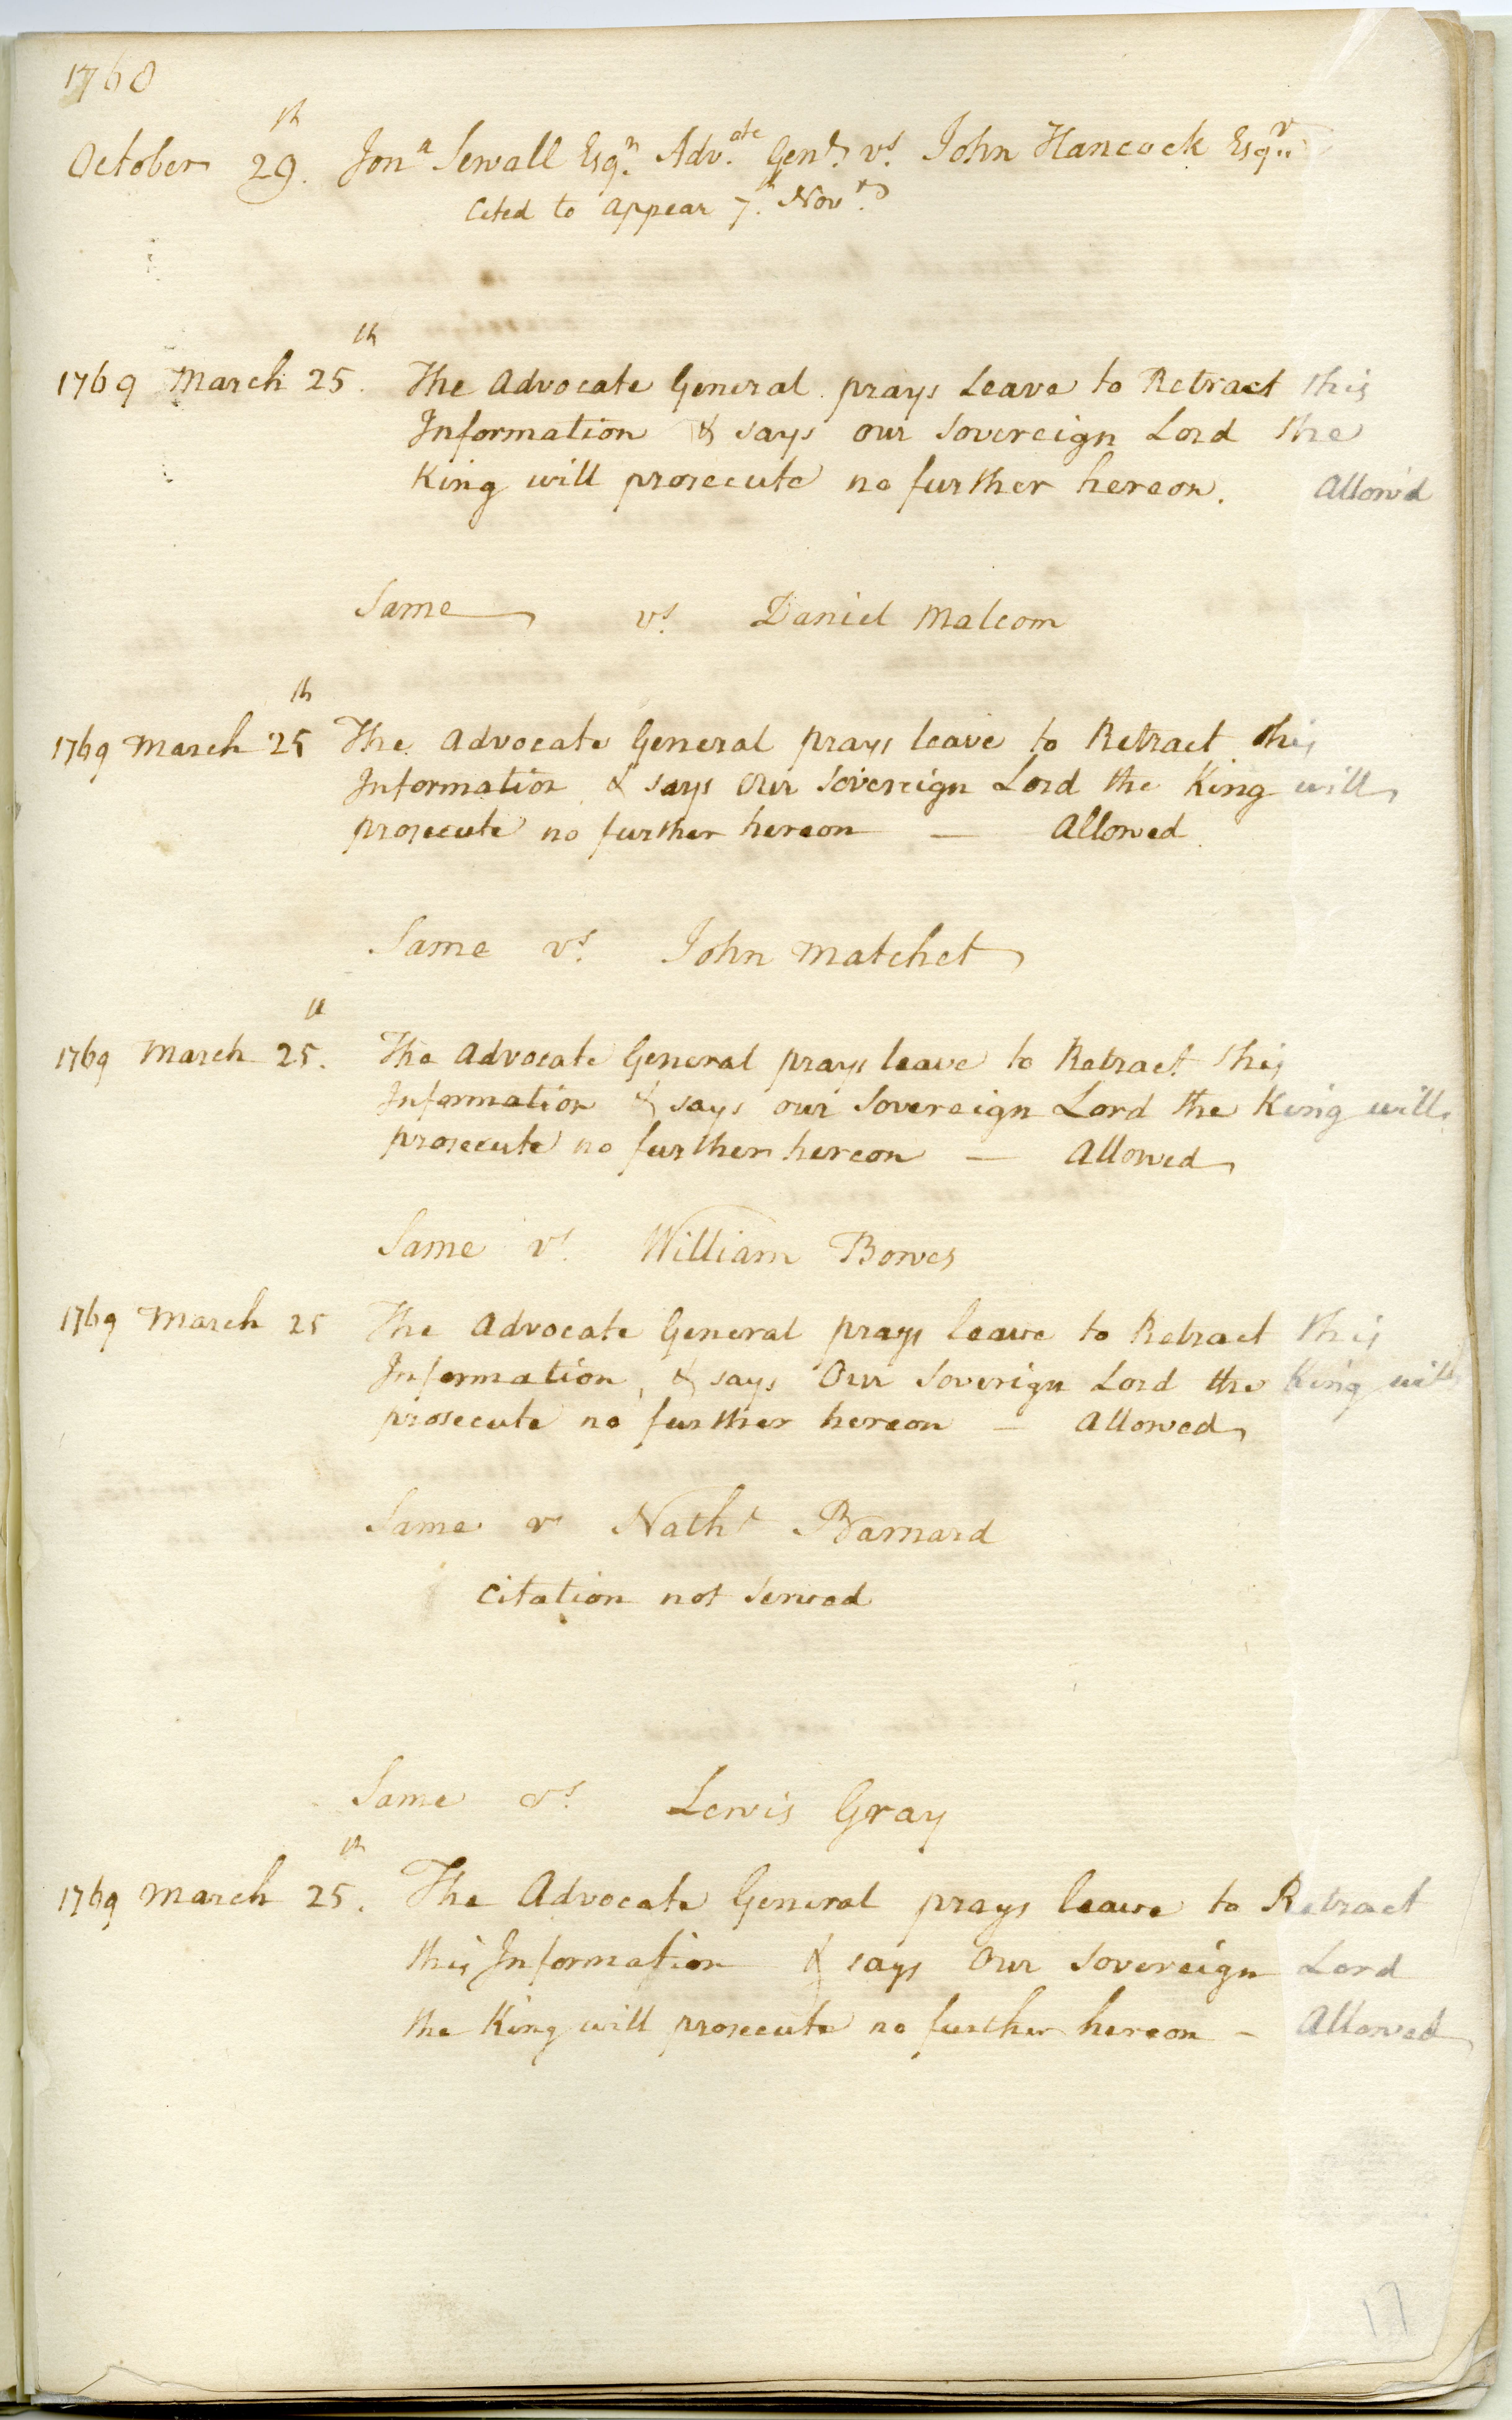 1768
October 29th. Jona Sewall Esqr. Advate Genl vs. John Hancock Esqr
Cited to appear 7th. Novr.
1769 March 25th. The Advocate General prays Leave to Retract this
Information & says our Sovereign Lord the
King will prosecute no further hereon. Allow'd
Same vs. Daniel Malcom
1769 March 25th The Advocate General prays leave to Retract this
Information & says Our Sovereign Lord the King will
prosecute no further hereon — Allowed
Same vs. John Matchet
1769 March 25th. The Advocate General prays leave to Retract this
Information & says our Sovereign Lord the King will
prosecute no further hereon — Allowed
Same vs. William Bowes
1769 March 25 The Advocate General prays leave to Retract this
Information, & says Our Soverign Lord the King will
prosecute no further hereon — Allowed
Same vs Nathl Barnard
Citation not Served
Same vs. Lewis Gray
1769 March 25th. The Advocate General prays leave to Retract
this Information & says Our Sovereign Lord
the King will prosecute no further hereon – Allowed
17